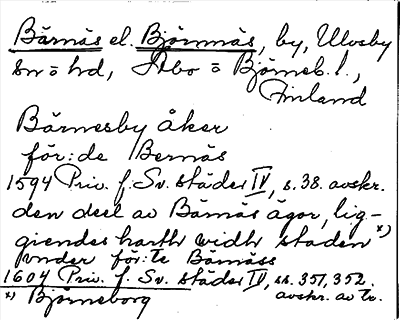 Bärnäs el. Björnnäs, by, Ulvsby
sn o hd, Åbo o Björneb. l.,
Finland
Bärnesby åker
för:de Bernäs
1594 Priv. f. Sv. städer IV, s. 38. avskr.
den deel av Bärnäs ägor, lig-
giendes hartt widh staden *)
vnder för:te Bärnäss
1604 Priv. f. Sv. städer IV, ss. 351, 352.
*) Björneborg avskr. av tr.